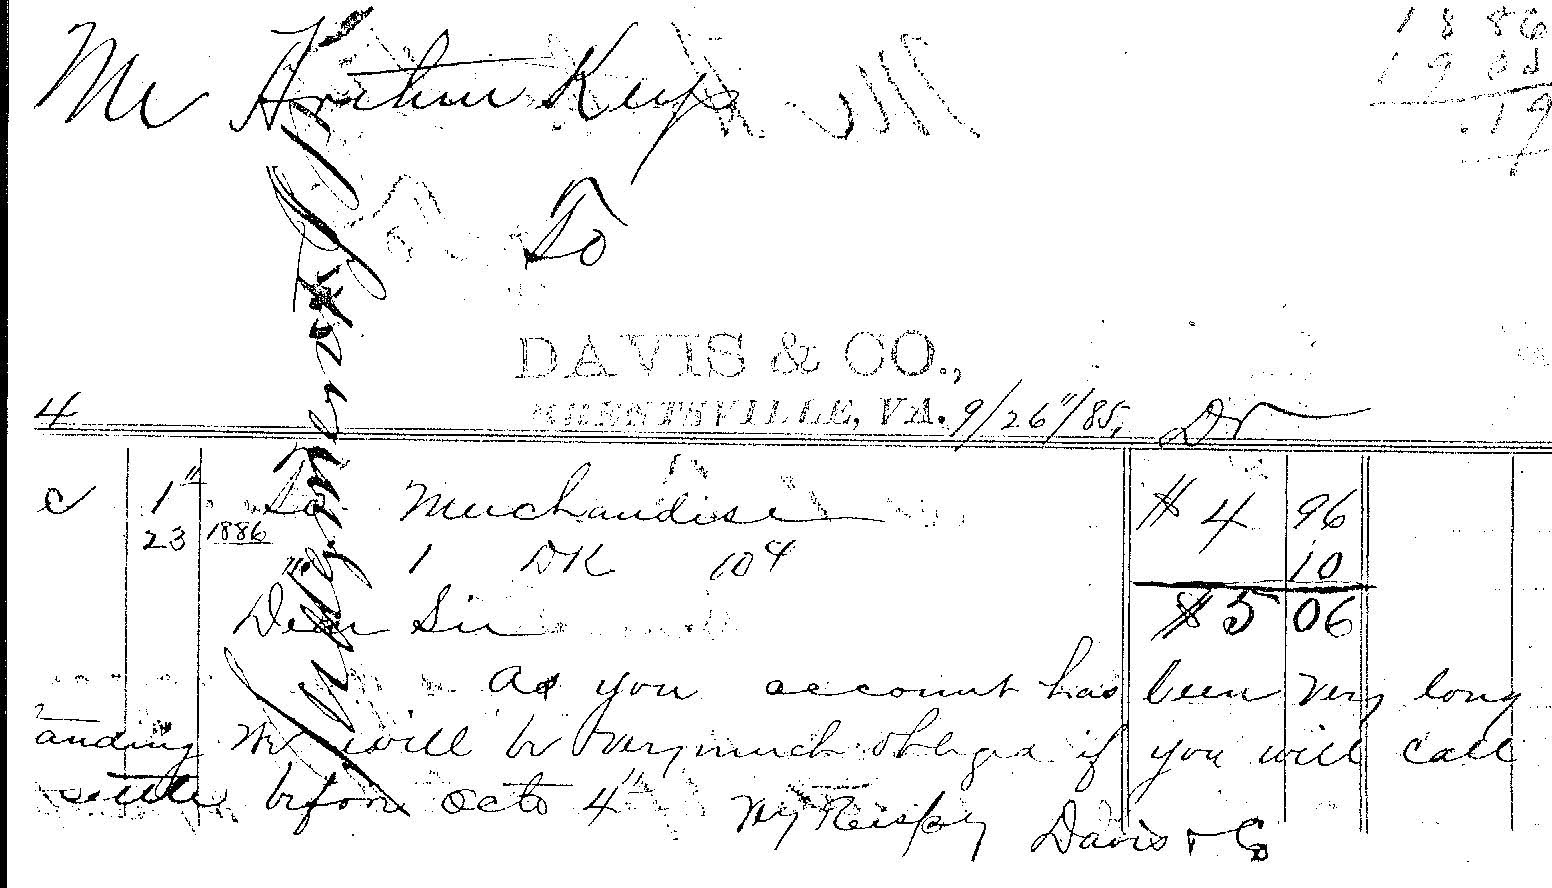 1886
1905
.19
Mr Arthur Keys
To
DAVIS & CO.,
BRENTSVILLE, VA. 9/26"/85, Dr
4
c 1" To Merchandise $ 4 96
23 1886 " 1 DK 10 4 10
$ 5 06
Dear Sir
As you account has been very long
anding We will be very much obliged if you will call
settle before Octo 4" Davis & Co